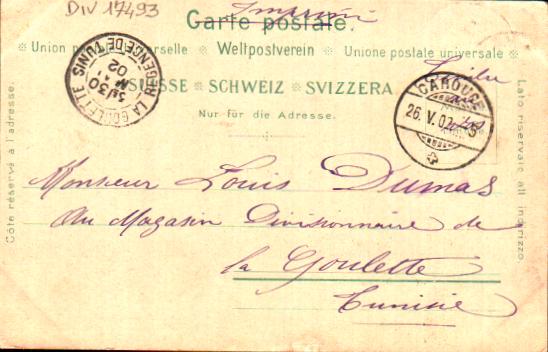 DIV 17493
Imprimé
Carte postale.
Union postale universelle ★ Weltpostverein ★ Unione postale universale
SUISSE SCHWEIZ SVIZZERA
Nur für die Adresse.
Côté réservé à l'adresse.
Lato riservato all indirizzo.
LA GOULETTE RÉGENCE DE TUNIS
30
02
CAROUGE
26.V.02
Monsieur Louis Dumas
Au Magasin Divisionnaire de
la Goulette
Tunisie